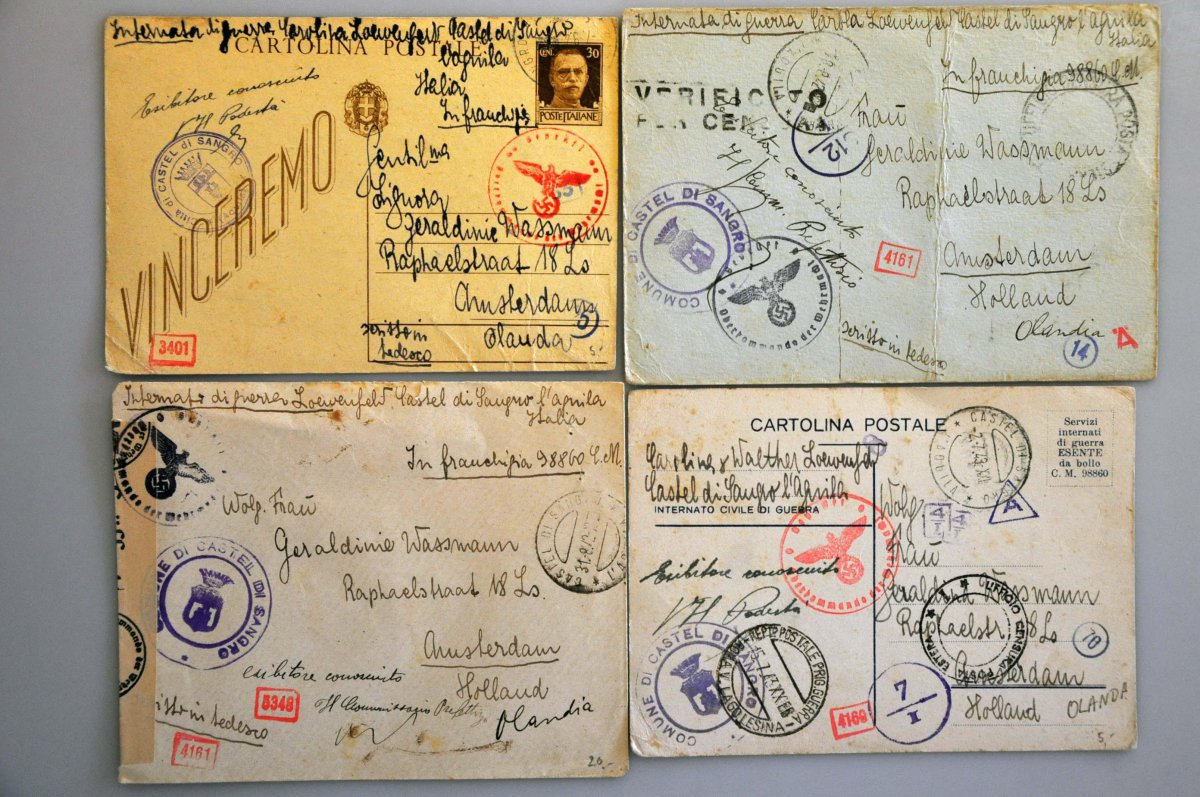 Internata di guerra Carolina Loewenfeld Castel di Sangro
l'Aquila
Italia
In franchigia
CARTOLINA POSTALE
CENT. 30
POSTE ITALIANE
Esibitore conosciuto
Il Podestà
CASTEL DI SANGRO
VINCEREMO
Gentilma
Signora
Geraldinie Wassmann
Raphaelstraat 18 Ls
Amsterdam
Olanda
scritto in
tedesco
3401
5
5.-
Internata di guerra Carola Loewenfeld Castel di Sangro l'Aquila
Italia
In franchigia 98860 C.M.
VERIFICATO
PER CEN
12
Frau
Geraldinie Wassmann
Raphaelstraat 18 Ls
Amsterdam
Holland
Olandia
conosciuto
COMUNE DI CASTEL DI SANGRO
Oberkommando der Wehrmacht
4161
scritto in tedesco
14
A
Internato di guerra Loewenfeld, Castel di Sangro l'Aquila
Italia
In franchigia 98860 C.M.
Wolg. Frau
Geraldinie Wassmann
Raphaelstraat 18 Ls.
Amsterdam
Holland
Olandia
31.8.42
COMUNE DI CASTEL DI SANGRO
esibitore conosciuto
Il Commissario Prefettizio
5348
4161
scritto in
tedesco
20.-
CARTOLINA POSTALE
Servizi
internati
di guerra
ESENTE
da bollo
C. M. 98860
Carolina & Walther Loewenfeld
Castel di Sangro l'Aquila
INTERNATO CIVILE DI GUERRA
CASTEL DI S
A
Wohlg.
Frau
Geraldinie Wassmann
Raphaelstr. 18 Ls
Amsterdam
Holland OLANDA
Esibitore conosciuto
Il Podestà
Oberkommando
COMUNE DI CASTEL DI SANGRO
POSTALE PRIG. GUERRA
UFFICIO CENSURA POSTA ESTERA
70
7
I
4166
5.-